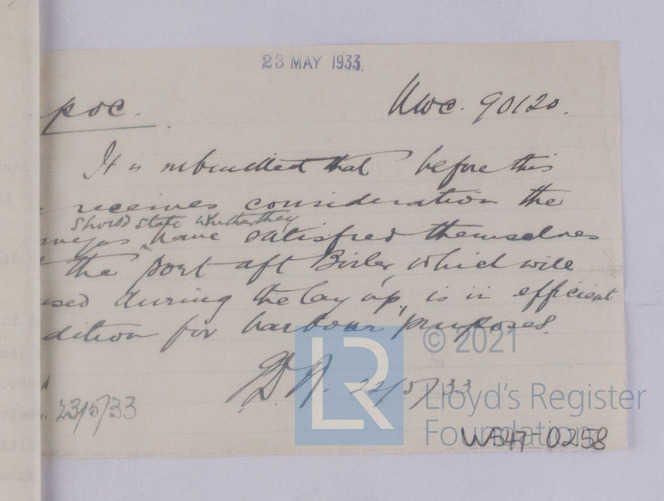 23 MAY 1933.
poc. Nwc. 90120.
It is submitted that before this
receives consideration the
should state whether they
have satisfied themselves
the port aft Boiler, which will
used during the lay up, is in efficient
dition for harbour purposes.
22/5/33
23/5/33
LR
© 2021
Lloyd's Register
Foundation
W547-0258